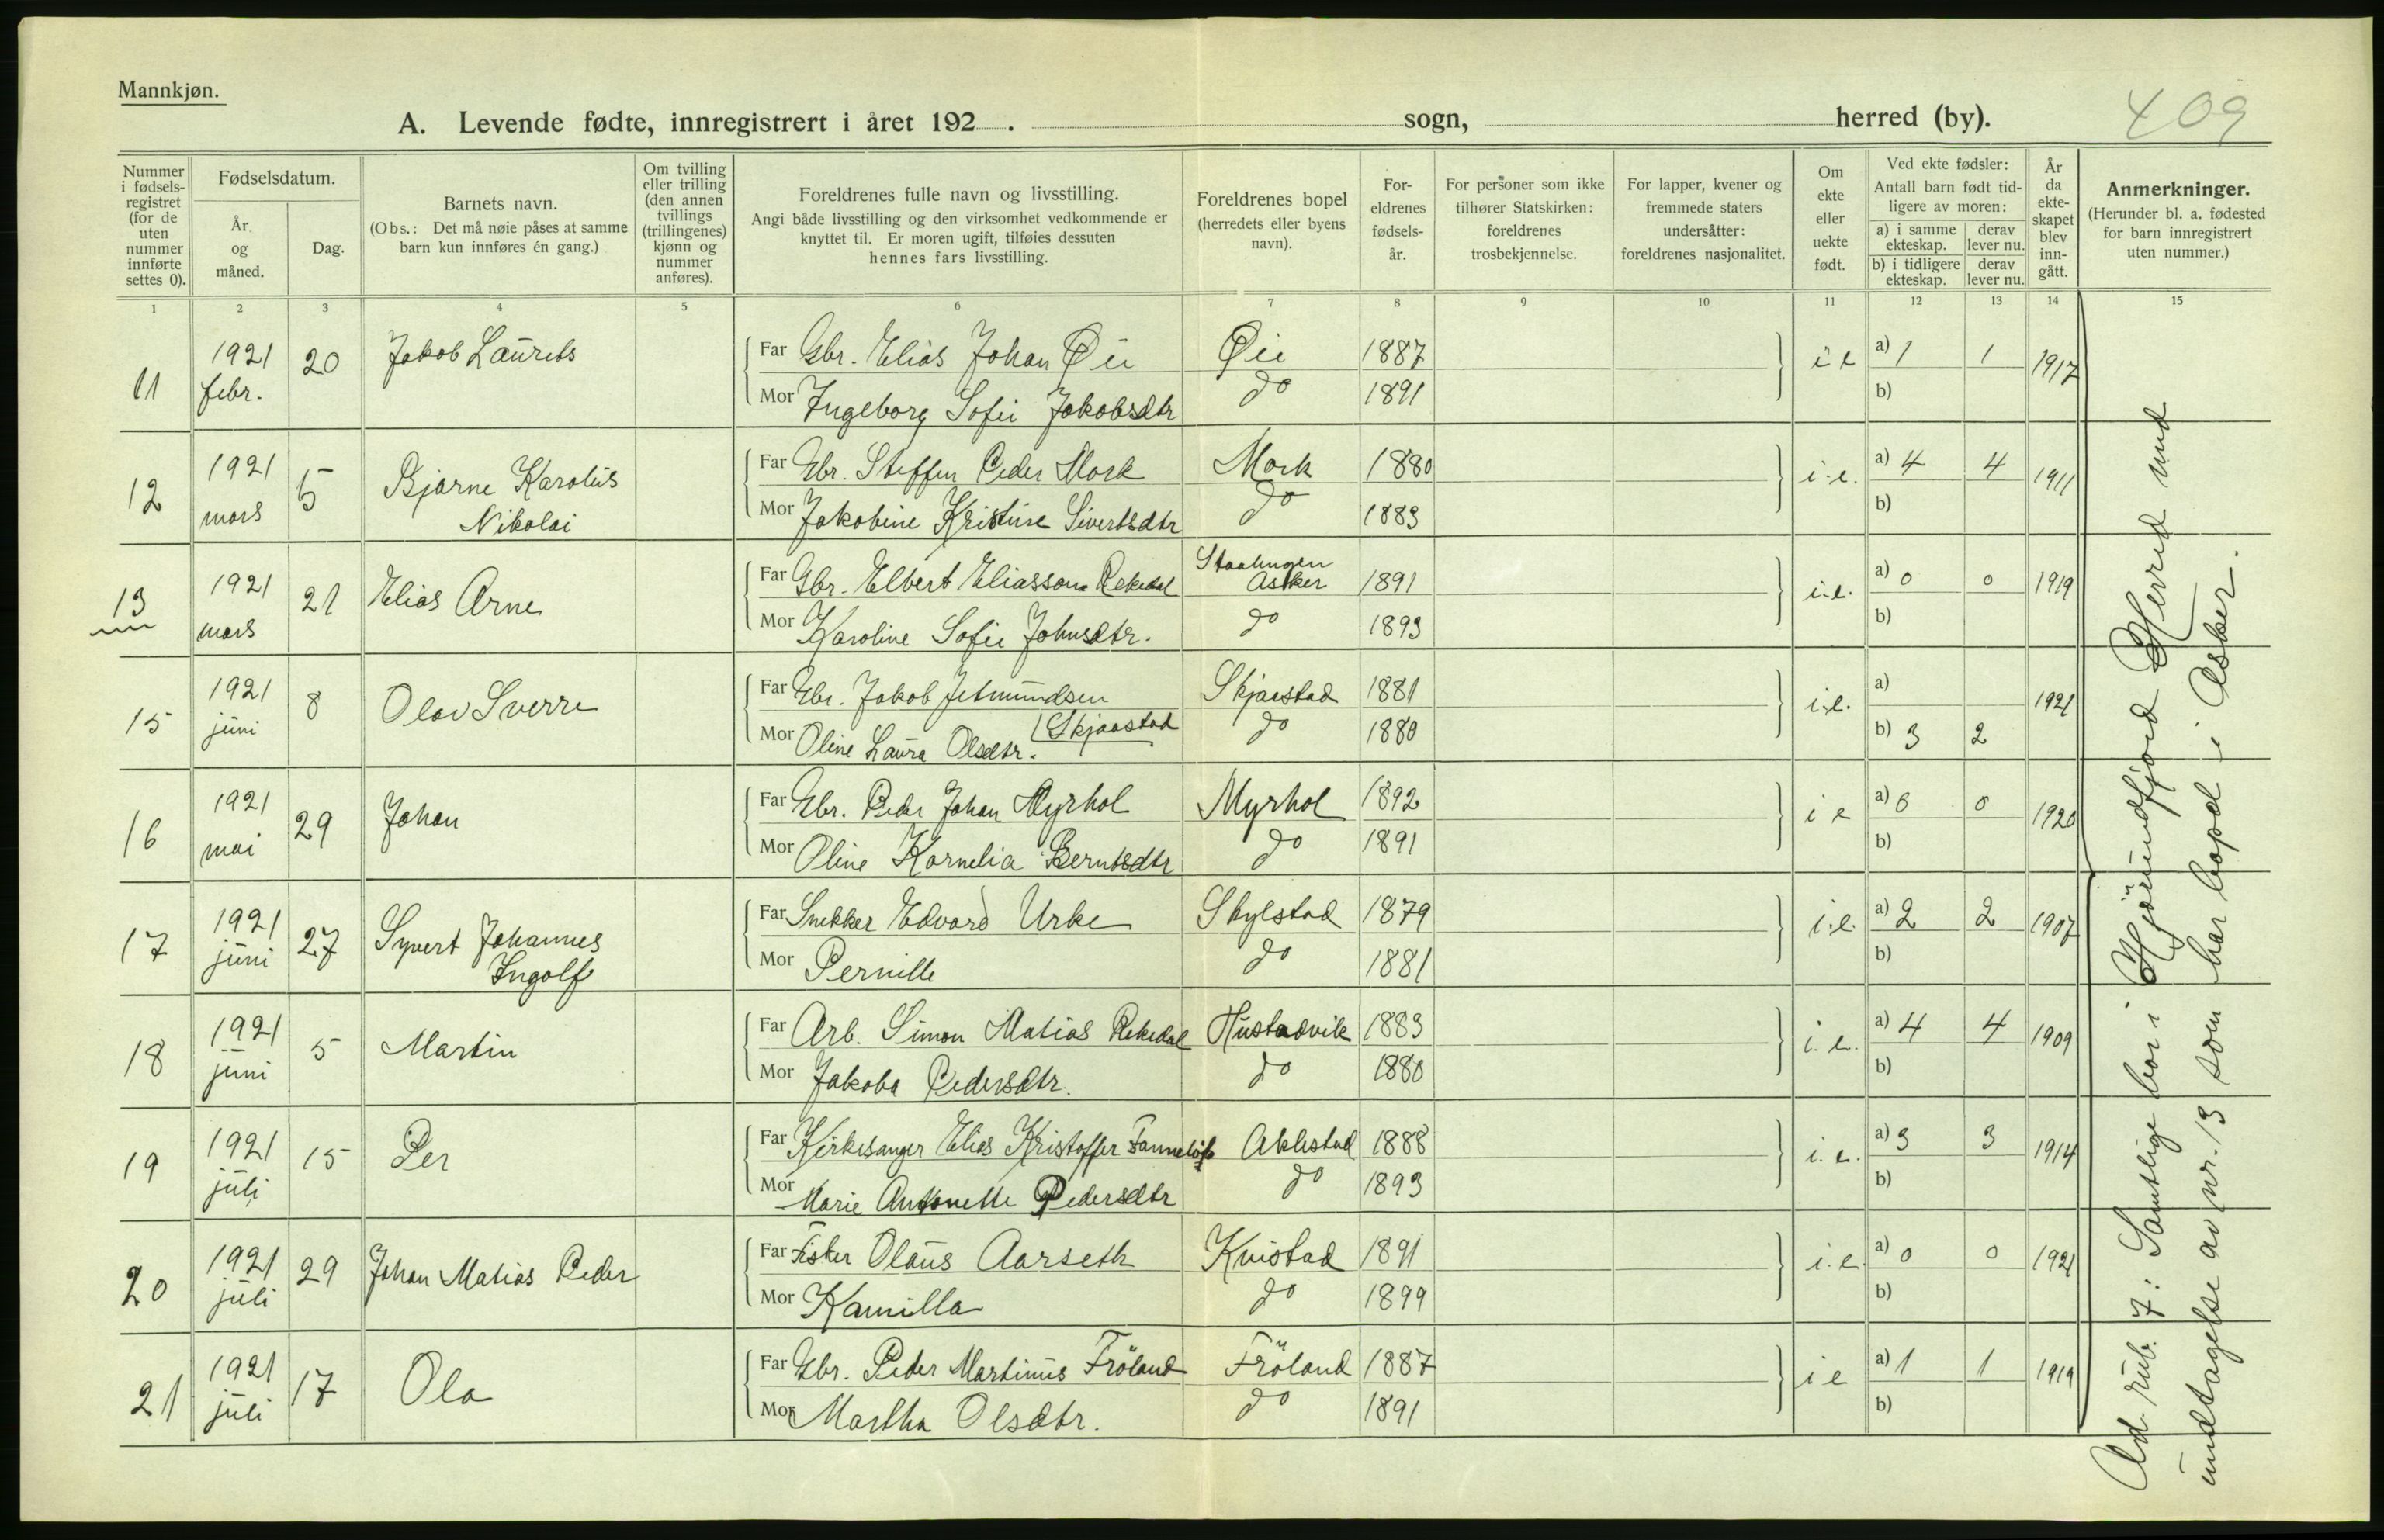 Mannkjøn.
409
A. Levende fødte, innregistrert i året 192 . sogn, herred (by).
Nummer i fødsels-registret (for de uten nummer innførte settes 0).
Fødselsdatum.
År og måned.
Dag.
Barnets navn.
(Obs.: Det må nøie påses at samme barn kun innføres én gang.)
Om tvilling eller trilling (den annen tvillings (trillingenes) kjønn og nummer anføres).
Foreldrenes fulle navn og livsstilling.
Angi både livsstilling og den virksomhet vedkommende er knyttet til. Er moren ugift, tilføies dessuten hennes fars livsstilling.
Foreldrenes bopel (herredets eller byens navn).
For-eldrenes fødsels-år.
For personer som ikke tilhører Statskirken: foreldrenes trosbekjennelse.
For lapper, kvener og fremmede staters undersåtter: foreldrenes nasjonalitet.
Om ekte eller uekte født.
Ved ekte fødsler:
Antall barn født tid-ligere av moren:
a) i samme ekteskap. derav lever nu.
b) i tidligere ekteskap. derav lever nu.
År da ekte-skapet blev inn-gått.
Anmerkninger.
(Herunder bl. a. fødested for barn innregistrert uten nummer.)
1 2 3 4 5 6 7 8 9 10 11 12 13 14 15
11 1921 febr. 20 Jakob Laurits Far Gbr. Elias Johan Øie Øie 1887 i e a) 1 1 1917
Mor Ingeborg Sofie Jakobsdtr do 1891 b)
12 1921 mars 5 Bjarne Karolus Nikolai Far Gbr. Steffen Peder Mork Mork 1880 i.e. a) 4 4 1911
Mor Jakobine Kristine Sivertsdtr do 1883 b)
13 1921 mars 21 Elias Arne Far Gbr. Elbert Eliasson Rekedal Asker 1891 i.e. a) 0 0 1919
Mor Karoline Sofie Johnsdtr. do 1893 b)
15 1921 juni 8 Olav Sverre Far Gbr. Jakob Jetmundsen Skjaastad Skjaestad 1881 i.e. a) 1921
Mor Oline Laura Olsdtr. do 1880 b) 3 2
16 1921 mai 29 Johan Far Gbr. Peder Johan Myrhol Myrhol 1892 i e a) 0 0 1920
Mor Oline Kornelia Berntsdtr do 1891 b)
17 1921 juni 27 Syvert Johannes Ingolf Far Snekker Edvard Urke Skylstad 1879 i.e. a) 2 2 1907
Mor Pernille do 1881 b)
18 1921 juni 5 Martin Far Arb. Simon Matias Rekedal Hustadvik 1883 i.e. a) 4 4 1909
Mor Jakoba Pedersdtr. do 1880 b)
19 1921 juli 15 Per Far Kirkesanger Elias Kristoffer Aklestad 1888 i.e. a) 3 3 1914
Mor Marie Antonette Pedersdtr do 1893 b)
20 1921 juli 29 Johan Matias Peder Far Fisker Olaus Aarseth Kvistad 1891 i.e. a) 0 0 1921
Mor Kamilla do 1899 b)
21 1921 juli 17 Ola Far Gbr. Peder Martinus Fröland Fröland 1887 i e a) 1 1 1919
Mor Martha Olsdtr. do 1891 b)
Ad rub. 7: Samtlige bor i Hjørundfjord Herred med
undtagelse av nr. 13 som har bopel i Asker.